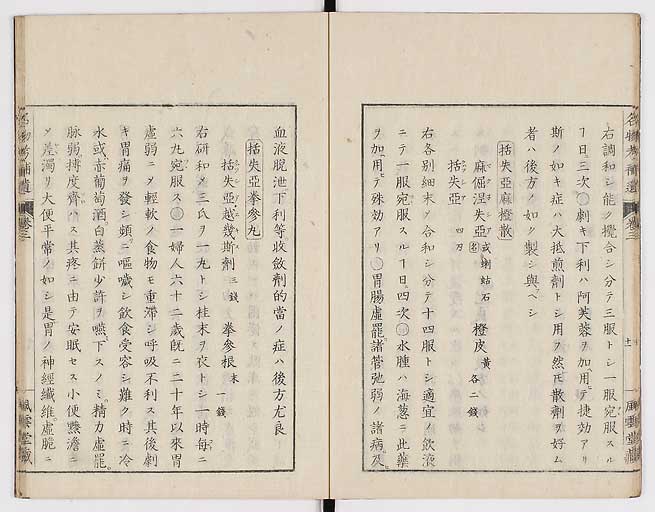 右調和シ能ク攪合シ分テ三服トシ一服宛服スル
７日ニ三次○劇キ下利ハ阿芙蓉ヲ加用テ捷効アリ
斯ノ如キ症ハ大抵煎劑トシ用ヲ然モ散劑ヲ好ム
者ハ後方ノ如ク製シ與ヘシ
括失亞麻橙散
麻倔涅失亞 或蝲蛄石 橙皮 黃 各二錢
括失亞 四刃
右各別細末メ合和シ分テ十四服トシ適宜ノ飲液
ニテ一服宛服スル７日ニ四次○水腫ハ海葱ニ此藥
ヲ加用テ殊効アリ○胃腸虛罷諸管弛弱ノ諸病及
血液脫泄下利等收斂劑的當ノ症ハ後方尤良
括失亞拳參丸
括失亞越幾斯劑 三錢 拳參根 末 一錢
右研和メ三氏ヲ一丸トシ桂末ヲ衣トシ一時每ニ
六丸宛服ス○一婦人六十二歲旣ニ二十年以來胃
虛弱ニメ輕軟ノ食物モ重滯シ呼吸不利ス其後劇
キ胃痛ヲ發シ頻ニ嘔噦シ飲食受容シ難ク時ニ冷
水或ハ赤葡萄酒白蒸餅少許ヲ嚥下スノミ精力虛罷
脉弱摶度齊ハス其疼ニ由テ安眠セス小便黲澹ニ
メ差濁リ大便平常ノ如シ是胃ノ神經纖維虛脆ニ
名物考補遺 卷三
風雲堂藏